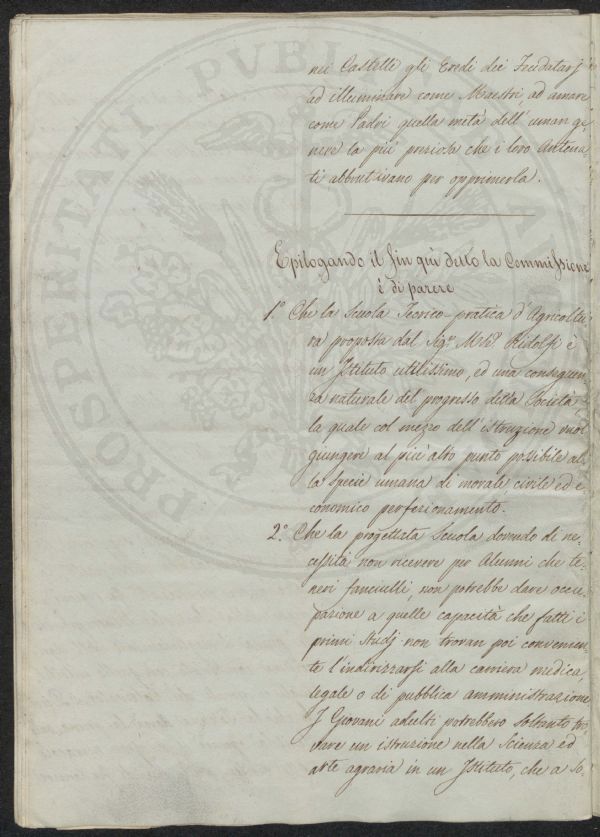 nei Castelli gli Eredi dei Feudatarj
ad illuminare come Maestri, ad amare
come Padri quella metà dell' uman ge
nere la più preziosa che i loro Antena
ti abbrutivano per opprimerla.
Epilogando il fin quì detto la Commissione
è di parere
1.° Che la Scuola Teorico-pratica d'Agricoltu
ra proposta dal Sig.r M.se Ridolfi è
un Istituto utilissimo, ed una conseguen
za naturale del progresso della Società,
la quale col mezzo dell' istruzione vuol
giungere al più alto punto possibile al
la specie umana di morale, civile ed e
conomico perfezionamento.
2.° Che la progettata Scuola dovendo di ne
cessità non ricevere per Alunni che te
neri fanciulli, non potrebbe dare occu
pazione a quelle capacità che fatti i
primi Studj non trovan poi convenien
te l'indirizzarsi alla carriera medica,
legale o di pubblica amministrazione
I Giovani adulti potrebbero soltanto tro
vare un istruzione nella Scienza ed
arte agraria in un Istituto, che a So
PROSPERITATI PVBLI